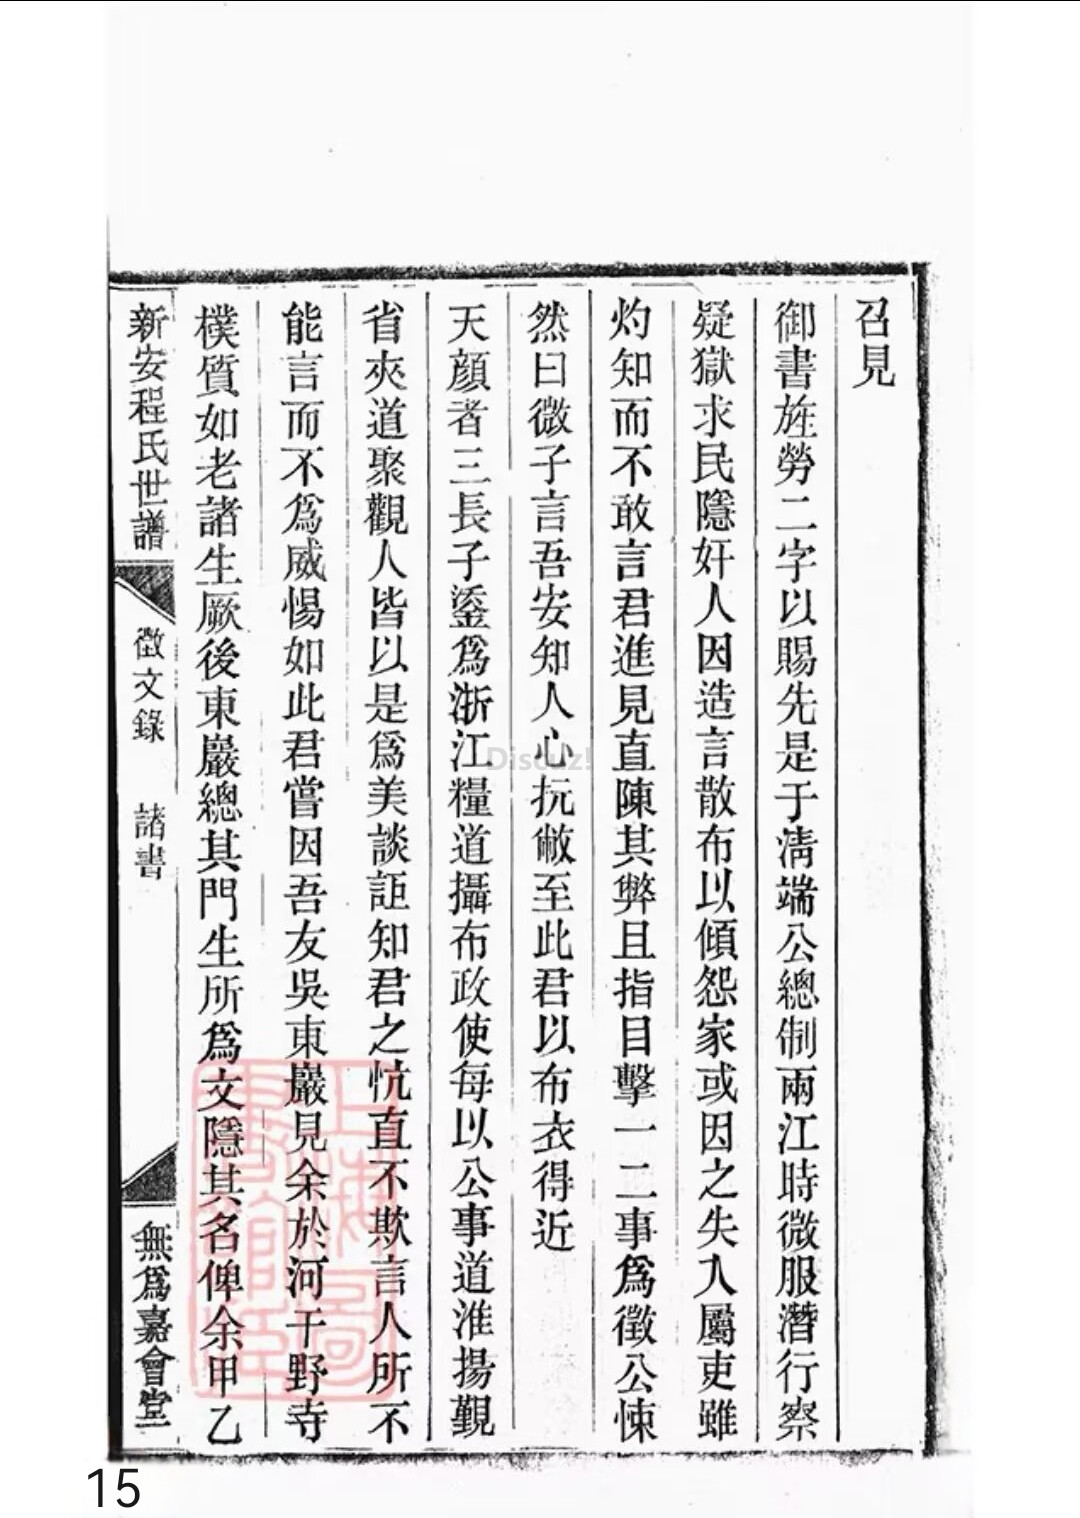 召見
御書旌勞二字以賜先是于清端公總制兩江時微服潛行察
疑獄求民隱奸人因造言散布以傾怨家或因之失入屬吏雖
灼知而不敢言君進見直陳其弊且指目擊一二事爲徵公悚
然曰微子言吾安知人心抏敝至此君以布衣得近
天顔者三長子鎏爲浙江糧道攝布政使每以公事道淮揚覲
省夾道聚觀人皆以是爲美談詎知君之忼直不欺言人所不
能言而不爲威惕如此君嘗因吾友吳東巖見余於河干野寺
樸質如老諸生厥後東巖總其門生所爲文隱其名俾余甲乙
新安程氏世譜 徵文錄 諸書 無爲嘉會堂
上海圖書館藏
Discuz!
15